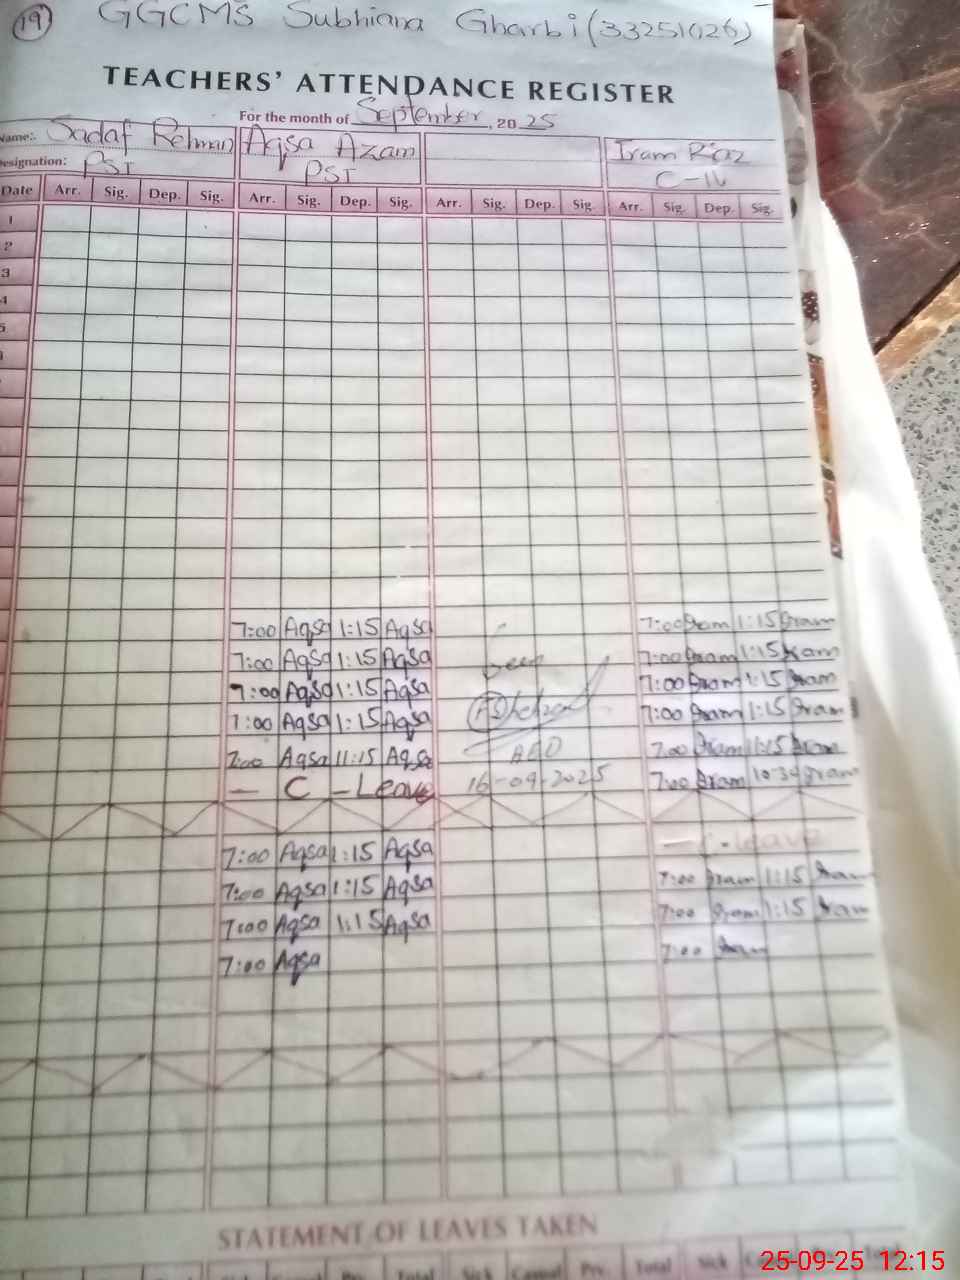 19 GGCMS Subhiana Gharbi (33251026)
TEACHERS' ATTENDANCE REGISTER
For the month of September, 2025
Name: Sadaf Rehman Aqsa Azam Iram Riaz
Designation: PST PST C-IV
Date Arr. Sig. Dep. Sig. Arr. Sig. Dep. Sig. Arr. Sig. Dep. Sig. Arr. Sig. Dep. Sig.
1
2
3
4
5
7:00 Aqsa 1:15 Aqsa 7:00 Iram 1:15 Iram
7:00 Aqsa 1:15 Aqsa Seen 7:00 Iram 1:15 Iram
7:00 Aqsa 1:15 Aqsa 7:00 Iram 1:15 Iram
7:00 Aqsa 1:15 Aqsa 7:00 Iram 1:15 Iram
7:00 Aqsa 11:15 Aqsa AEO 7:00 Iram 11:15 Iram
— C - Leave 16-09-2025 7:00 Iram 10:30 Iram
7:00 Aqsa 1:15 Aqsa — C-leave
7:00 Aqsa 1:15 Aqsa 7:00 Iram 1:15 Iram
7:00 Aqsa 1:15 Aqsa 7:00 Iram 1:15 Iram
7:00 Aqsa 7:00 Iram
STATEMENT OF LEAVES TAKEN
Sick Casual Prv. Total Sick Casual Prv. Total Sick Total
25-09-25 12:15